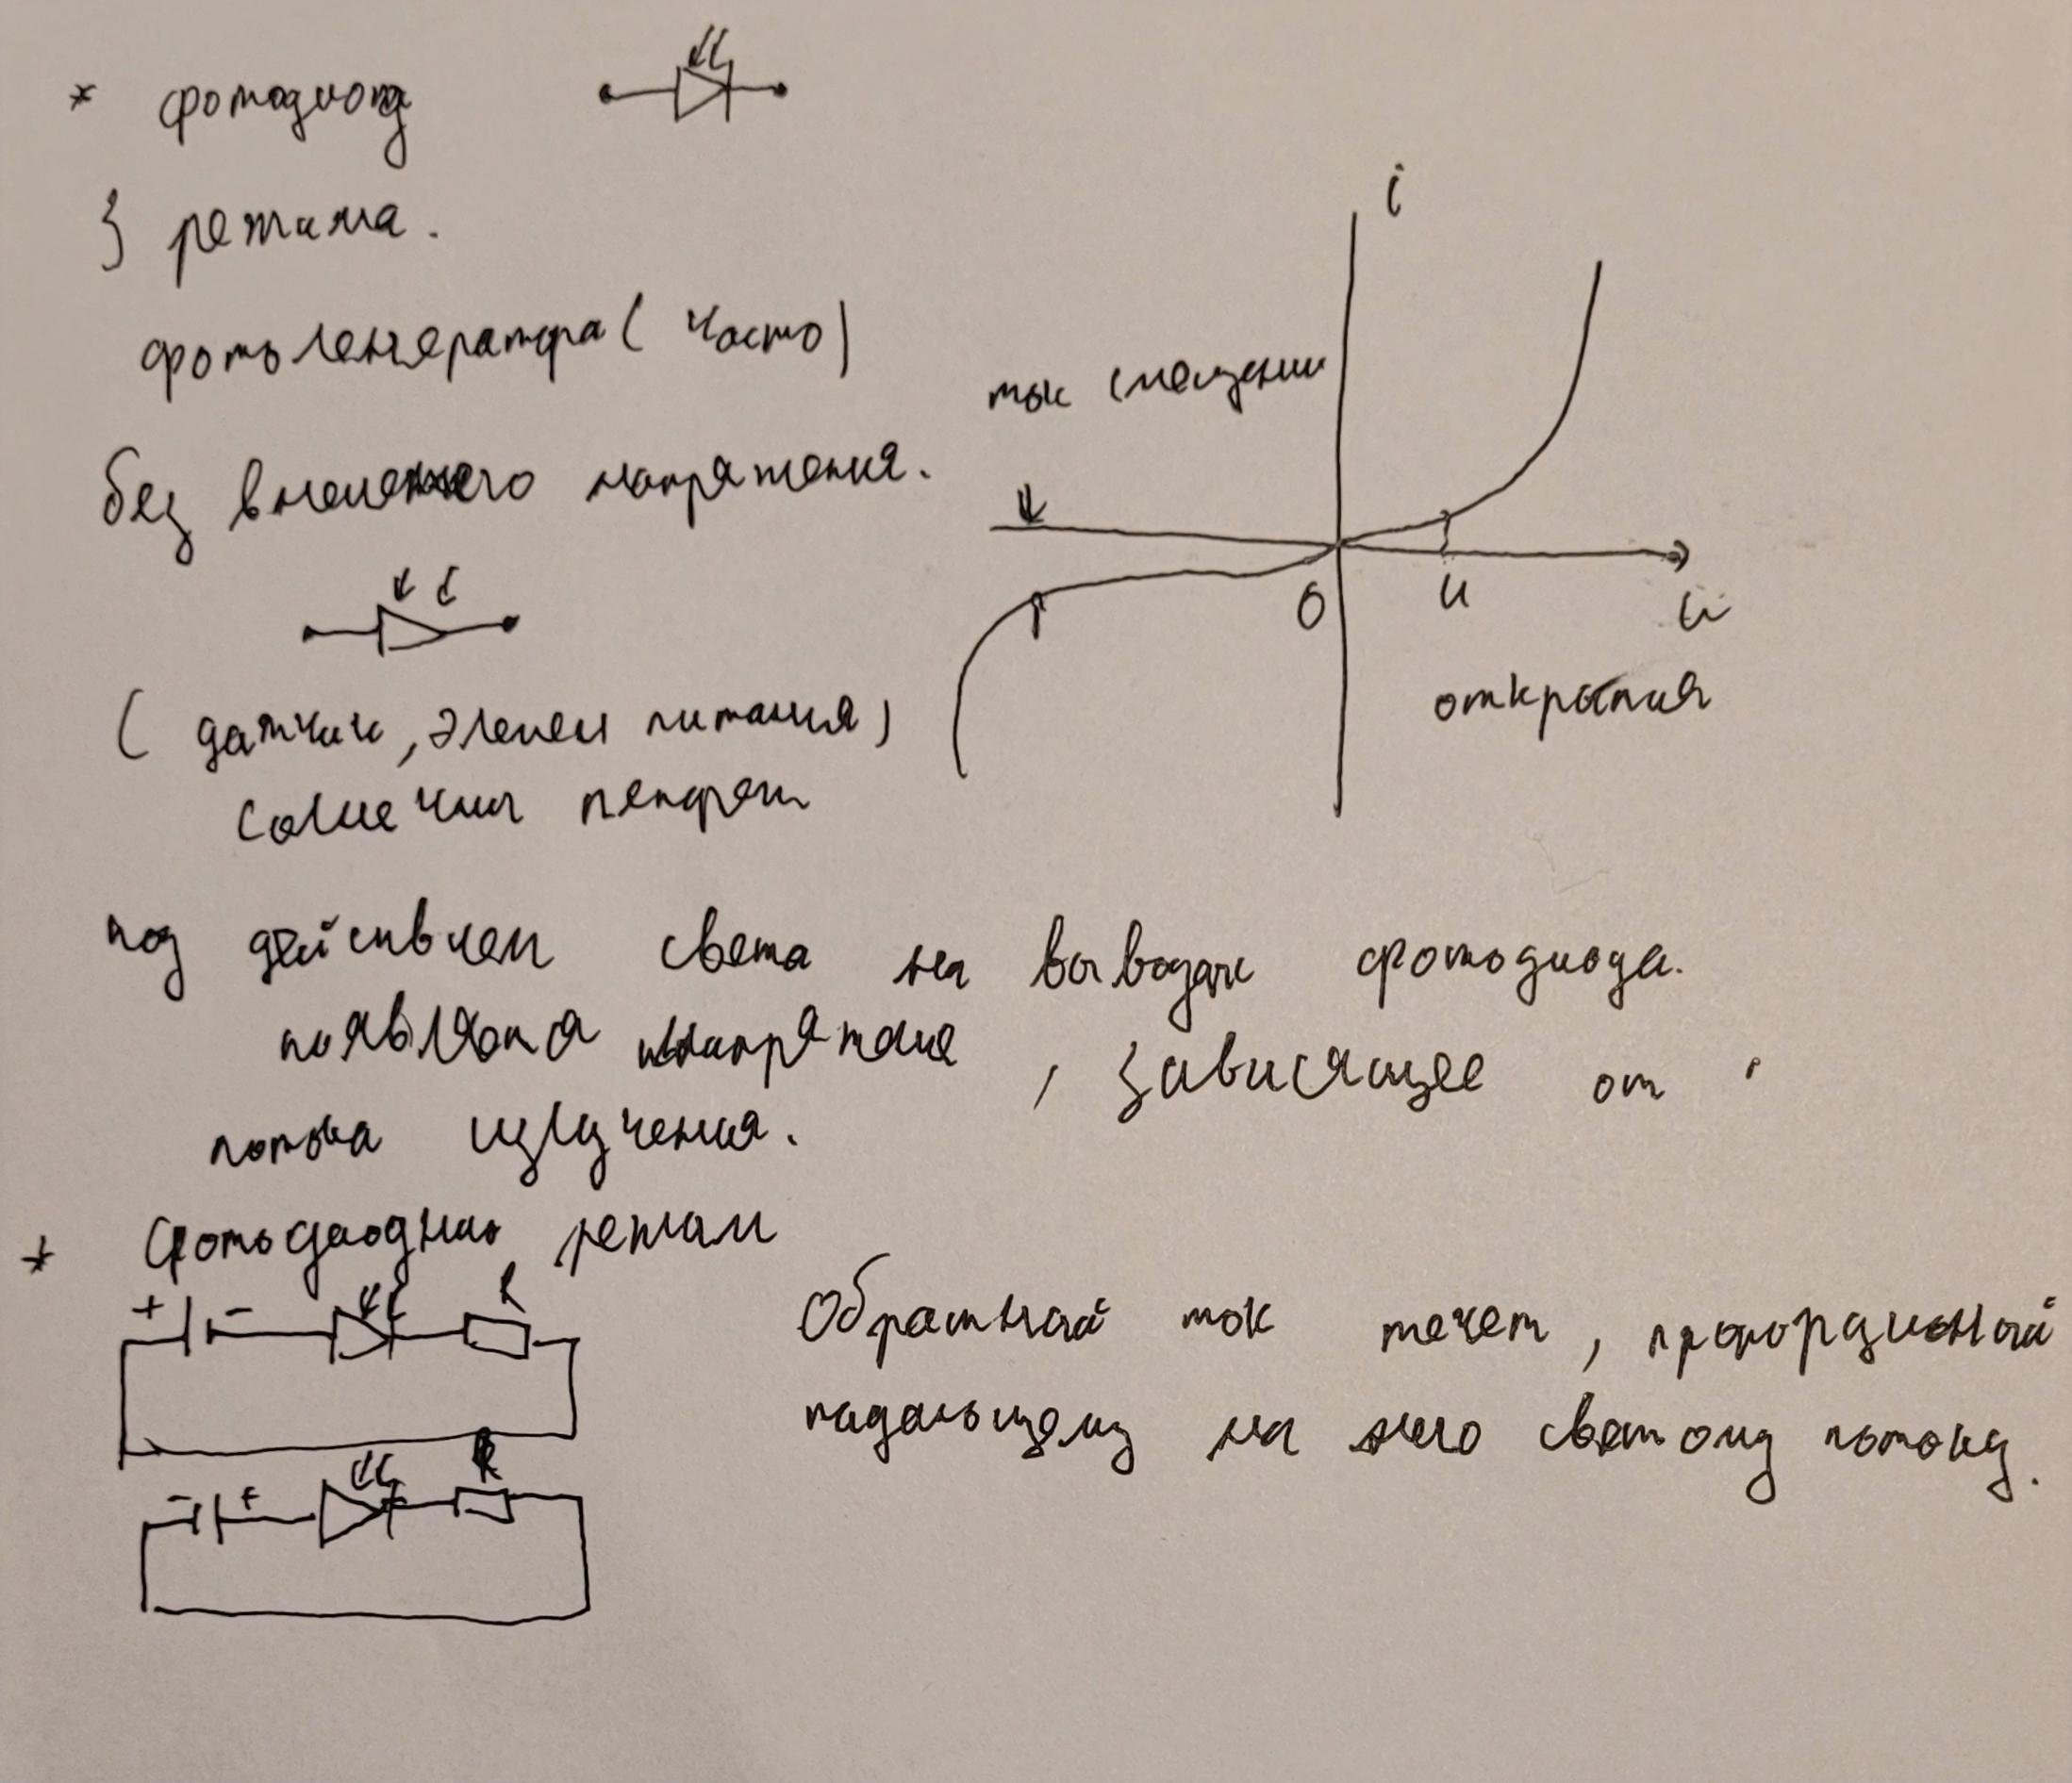 * фотодиод
3 режима.
фотогенератора (часто)
без внешнего напряжения.
i
ток смещения
0 u u
открытия
(датчик, элемен питания)
солнечн
под действием света на выводах фотодиода.
появляется напряжение, зависящее от
потока излучения.
* Фотодиодный режим
+ - R
Обратный ток течет, пропорциональный
падающему на него световому потоку.
- + R